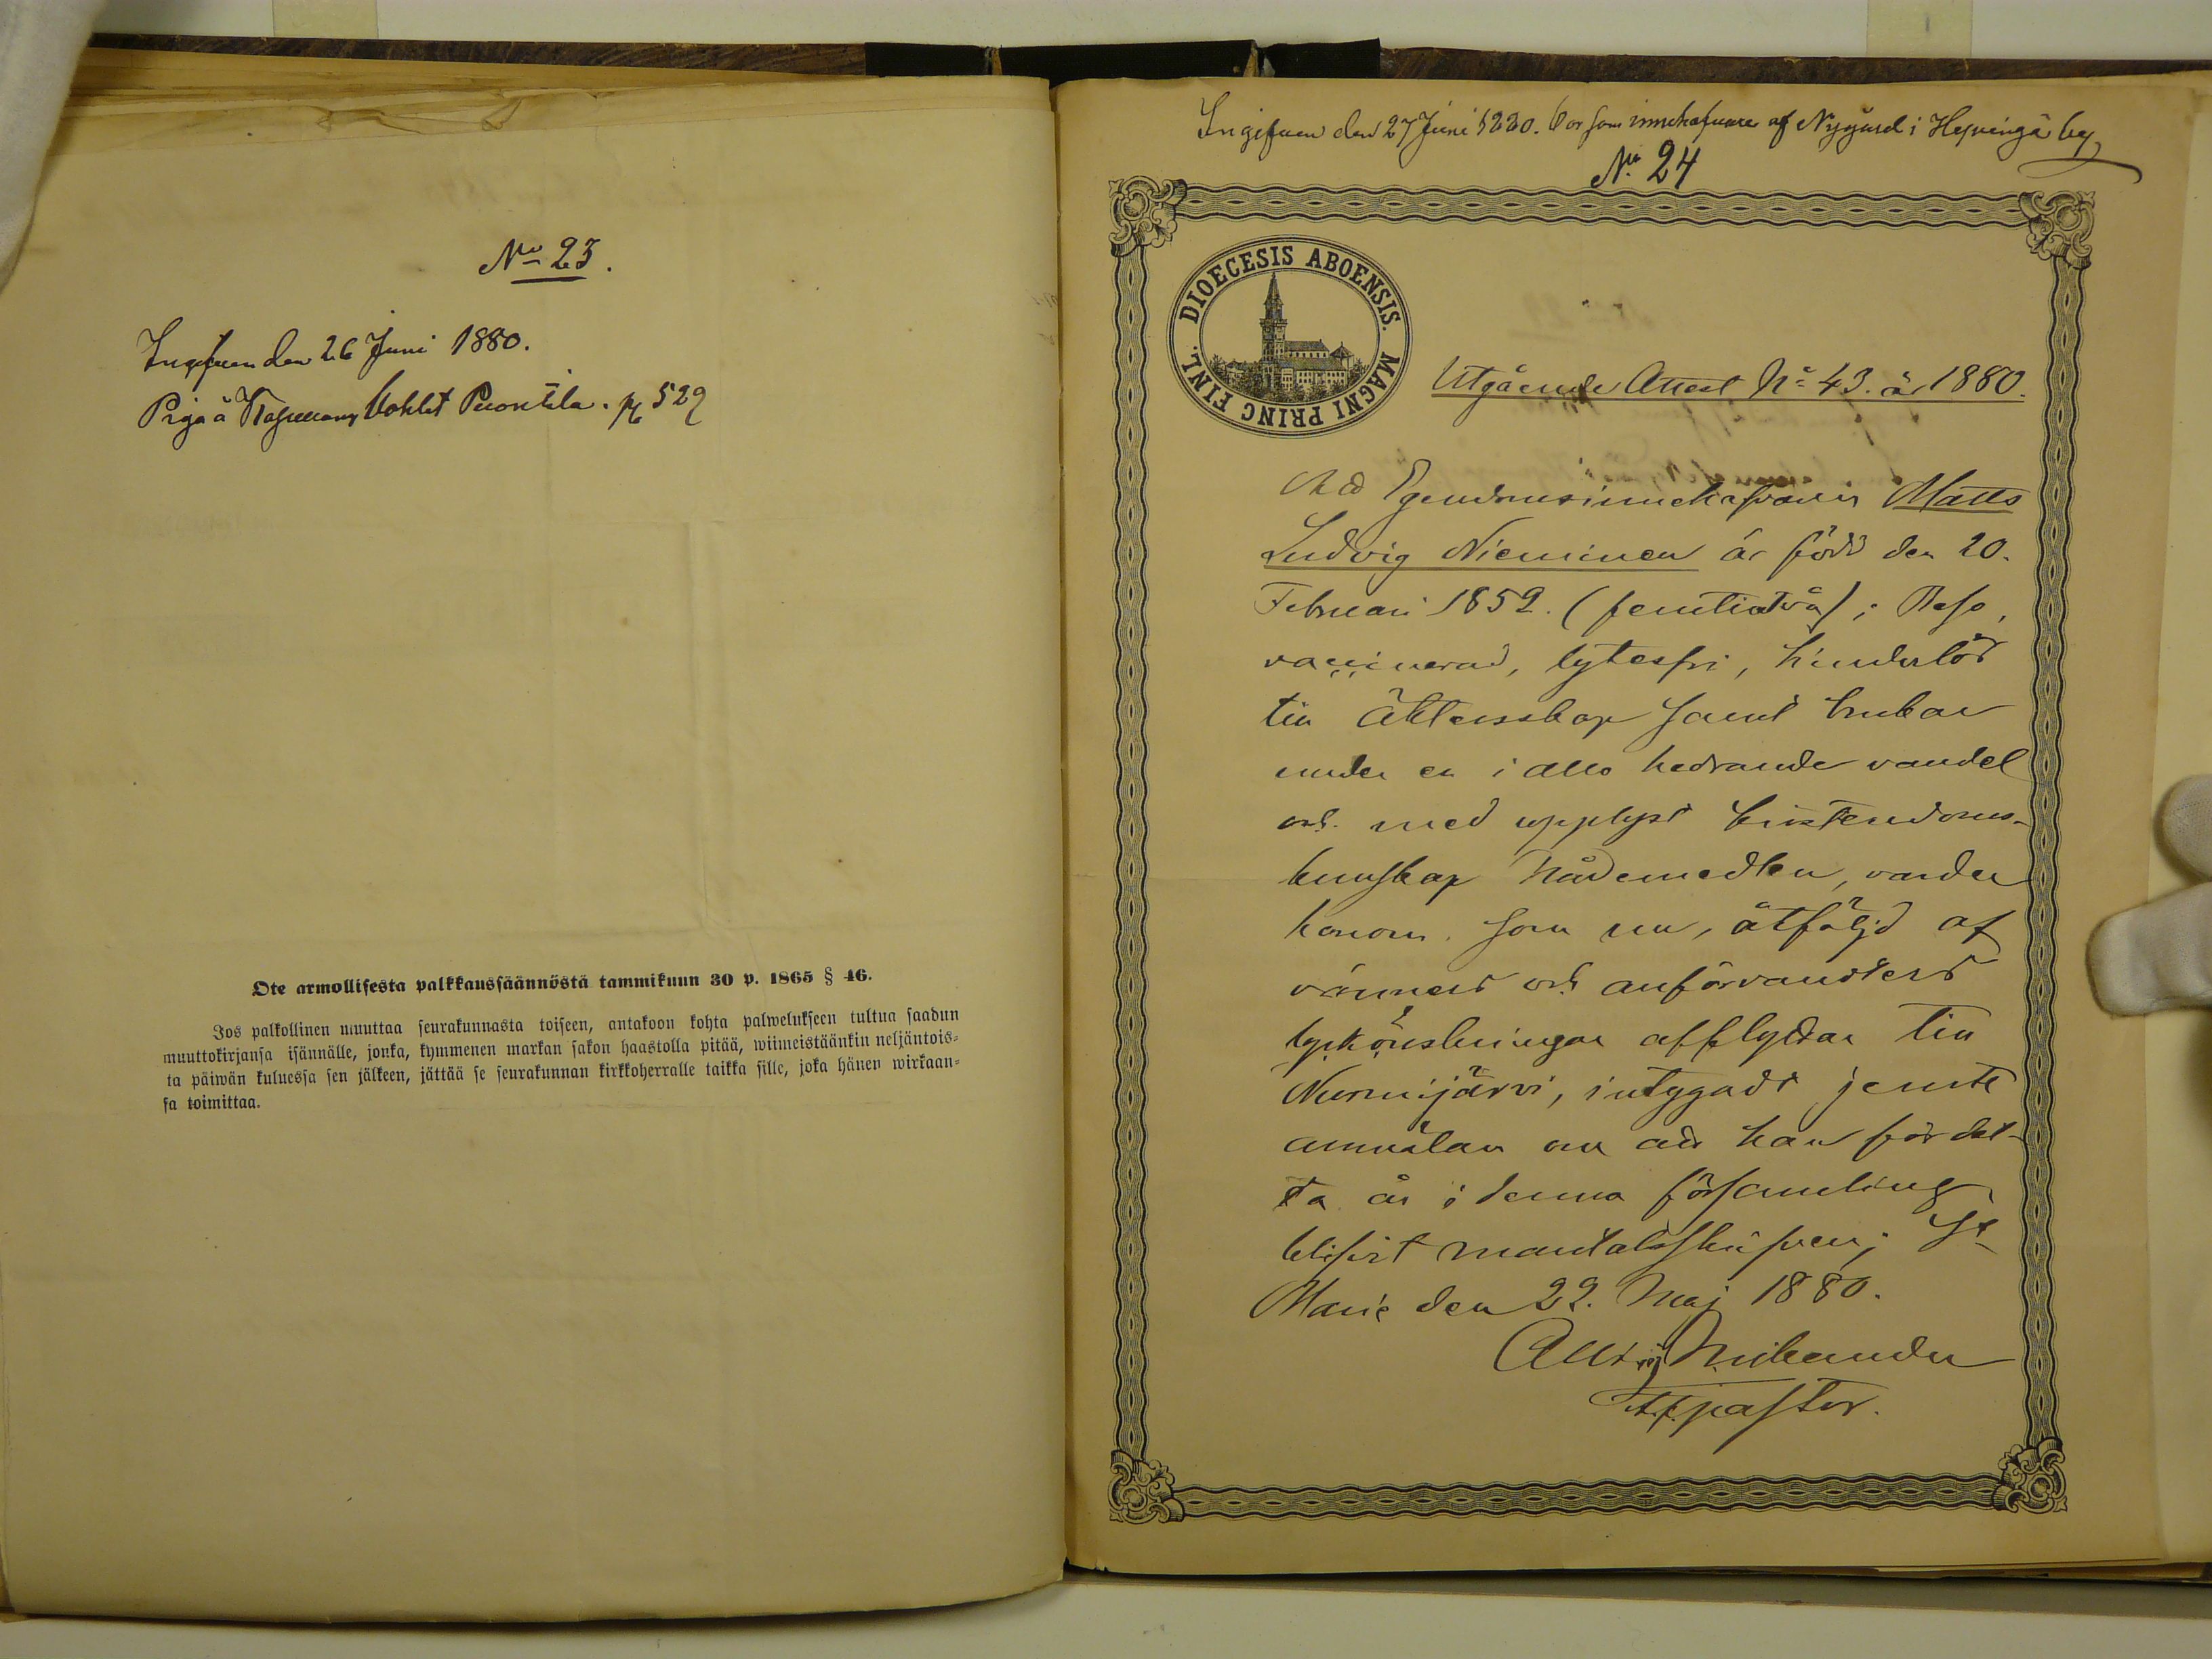 No 23.
Ingifven den 26 Juni 1880.
Piga å Vohlst Puontila. p 529
Ote armollisesta palkkaussäännöstä tammikuun 30 p. 1865 § 46.
Jos palkollinen muuttaa seurakunnasta toiseen, antakoon kohta palwelukseen tultua saadun
muuttokirjansa isännälle, jonka, kymmenen markan sakon haastolla pitää, wiimeistäänkin neljäntois-
ta päiwän kuluessa sen jälkeen, jättää se seurakunnan kirkkoherralle taikka sille, joka hänen wirkaan-
sa toimittaa.
Ingifven den 27 Juni 1880. Bor som innehafvare af Nygård i Hyvingä by
No 24
DIOECESIS ABOENSIS. MAGNI PRINC FINL.
Utgående Attest No 43. år 1880.
Att Egendomsinnehafvaren Matts
Ludvig Nieminen är född den 20.
Februari 1852. (femtiotvå) i Reso,
vaccinerad, lytesfri, hinderlös
till Äktenskap samt brukar
under en i allo hedrande vandel
och med upplyst kristendoms-
kunskap Nådemedlen, varder
honom, som nu, åtföljd af
vänners och anförvandters
lyckönskningar afflyttar till
Nurmijärvi, intygadt jemte
anmälan om att han för det-
ta år i denna församling
blifvit mantalsskrifven; St
Marie den 22. Maj 1880.
Mikander
pastor.